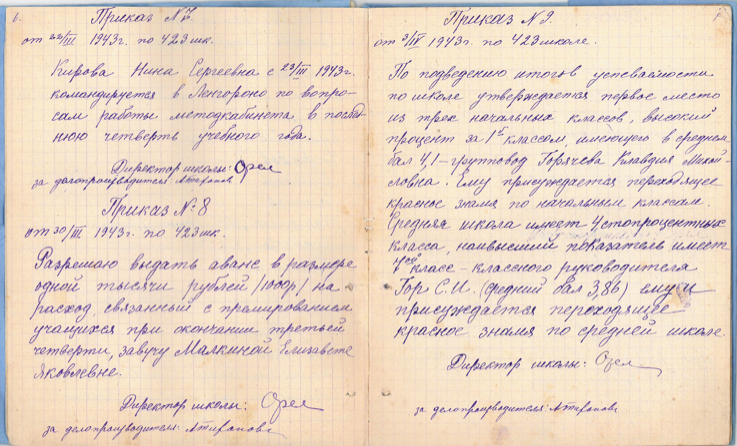 6.
Приказ №7.
от 22/III 1943г. по 423 шк.
Кирова Нина Сергеевна с 23/III 1943г.
командируется в Ленгороно по вопро-
сам работы методкабинета в послед-
нюю четверть учебного года.
Директор школы: Орел
за делопроизводителя
Приказ №8
от 30/III 1943г. по 423 шк.
Разрешаю выдать аванс в размере
одной тысячи рублей /1000р/ на
расход, связанный с премированием
учащихся при окончании третьей
четверти, завучу Малкиной Елизавете
Яковлевне.
Директор школы: Орел
за делопроизводителя:
Приказ №9.
от 3/IV 1943г. по 423 школе.
По подведению итогов успеваемости
по школе утверждается первое место
из трех начальных классов, высокий
процент за 1ым классом, имеющего в среднем
бал 4,1 - групповод Горячева Клавдия Михай-
ловна. Ему присуждается переходящее
красное знамя по начальным классам.
Средняя школа имеет 4 стопроцентных
класса, наивысший показатель имеет
класс - классного руководителя
Гор С.И. (средний бал 3,86) ему и
присуждается переходящее
красное знамя по средней школе.
Директор школы: Орел
за делопроизводителя: